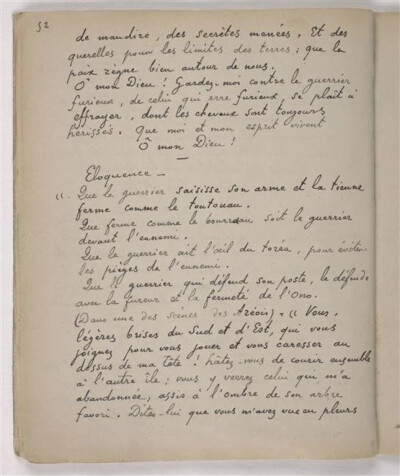 52
de maudire, des secrètes menées. Et des
querelles pour les limites des terres ; que la
paix règne bien autour de nous.
Ô mon Dieu ! Gardez-moi contre le guerrier
furieux, de celui qui erre furieux, se plaît à
effrayer, dont les cheveux sont toujours
hérissés. Que moi et mon esprit vivent
Ô mon Dieu !
Eloquence —
« Que le guerrier saisisse son arme et la tienne
ferme comme le toutouau.
Que ferme comme le bourreau soit le guerrier
devant l'ennemi.
Que le guerrier ait l'œil du toréa, pour éviter
les pièges de l'ennemi.
Que le guerrier qui défend son poste, le défende
avec la fureur et la fermeté de l'Ono.
(Dans une des scènes des Areois). « Vous,
légères brises du Sud et d'Est, qui vous
joignez pour vous jouer et vous caresser au
dessus de ma tête ! hâtez-vous de courir ensemble
à l'autre île ; vous y verrez celui qui m'a
abandonnée, assis à l'ombre de son arbre
favori. Dites-lui que vous m'avez vue en pleurs